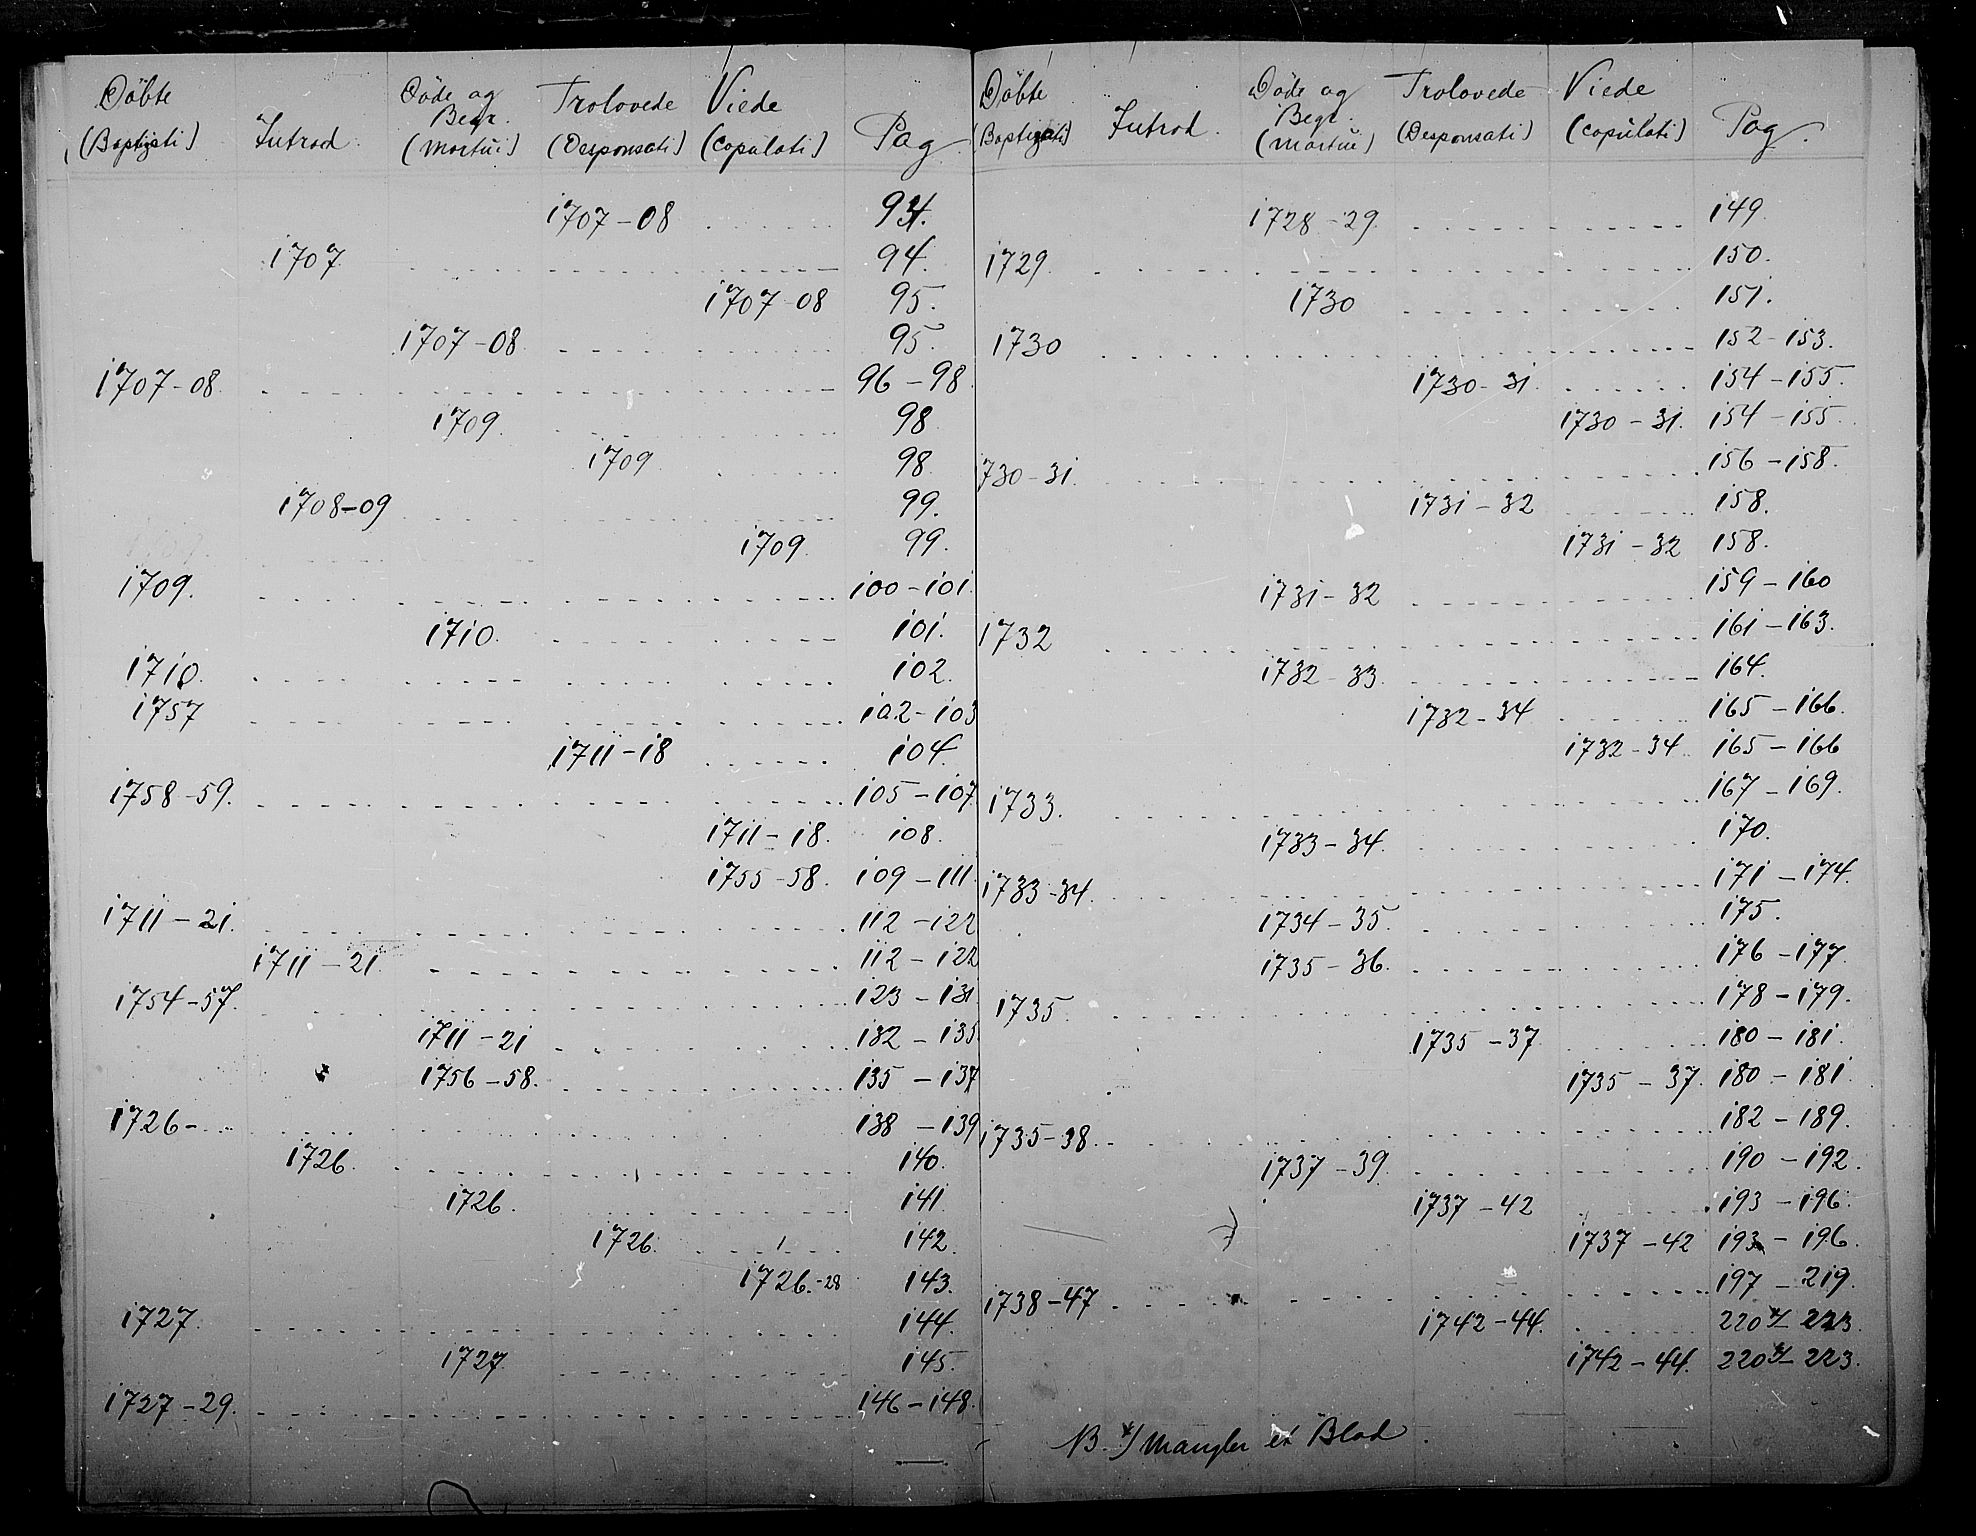 Döbte Introd. Döde og Begr. Trolovede Viede Pag
(Baptizati) (Mortui) (Desponsati) (Copulati)
1707-08 94.
1707 94.
1707-08 95.
1707-08 95.
1707-08. 96-98.
1709. 98
1709 98.
1708-09 99.
1709. 99.
1709. 100-101.
1710. 101.
1710. 102.
1757 102-103
1711-18 104.
1758-59. 105-107.
1711-18. 108.
1755-58. 109-111.
1711-21. 112-122
1711-21. 112-122
1754-57. 123-131
1711-21 132-135
1756-58. 135-137
1726- 138-139
1726. 140.
1726. 141.
1726. 142.
1726-28 143.
1727. 144.
1727 145.
1727-29. 146-148.
Döbte Introd. Döde og Begr. Trolovede Viede Pag.
(Baptizati) (Mortui) (Desponsati) (Copulati)
1728-29. 149.
1729. 150.
1730 151.
1730 152-153.
1730-31. 154-155.
1730-31. 154-155.
1730-31. 156-158.
1731-32 158.
1731-32 158.
1731-32 159-160
1732 161-163.
1732-33. 164.
1732-34 165-166.
1732-34. 165-166
1733. 167-169.
1733-34. 170.
1733-34. 171-174.
1734-35. 175.
1735-36. 176-177.
1735. 178-179.
1735-37 180-181.
1735-37. 180-181.
1735-38. 182-189.
1737-39. 190-192.
1737-42 193-196.
1737-42 193-196.
1738-47 197-219.
1742-44. 220 */- 223.
1742-44. 220 */- 223.
NB. */ mangler et Blad.